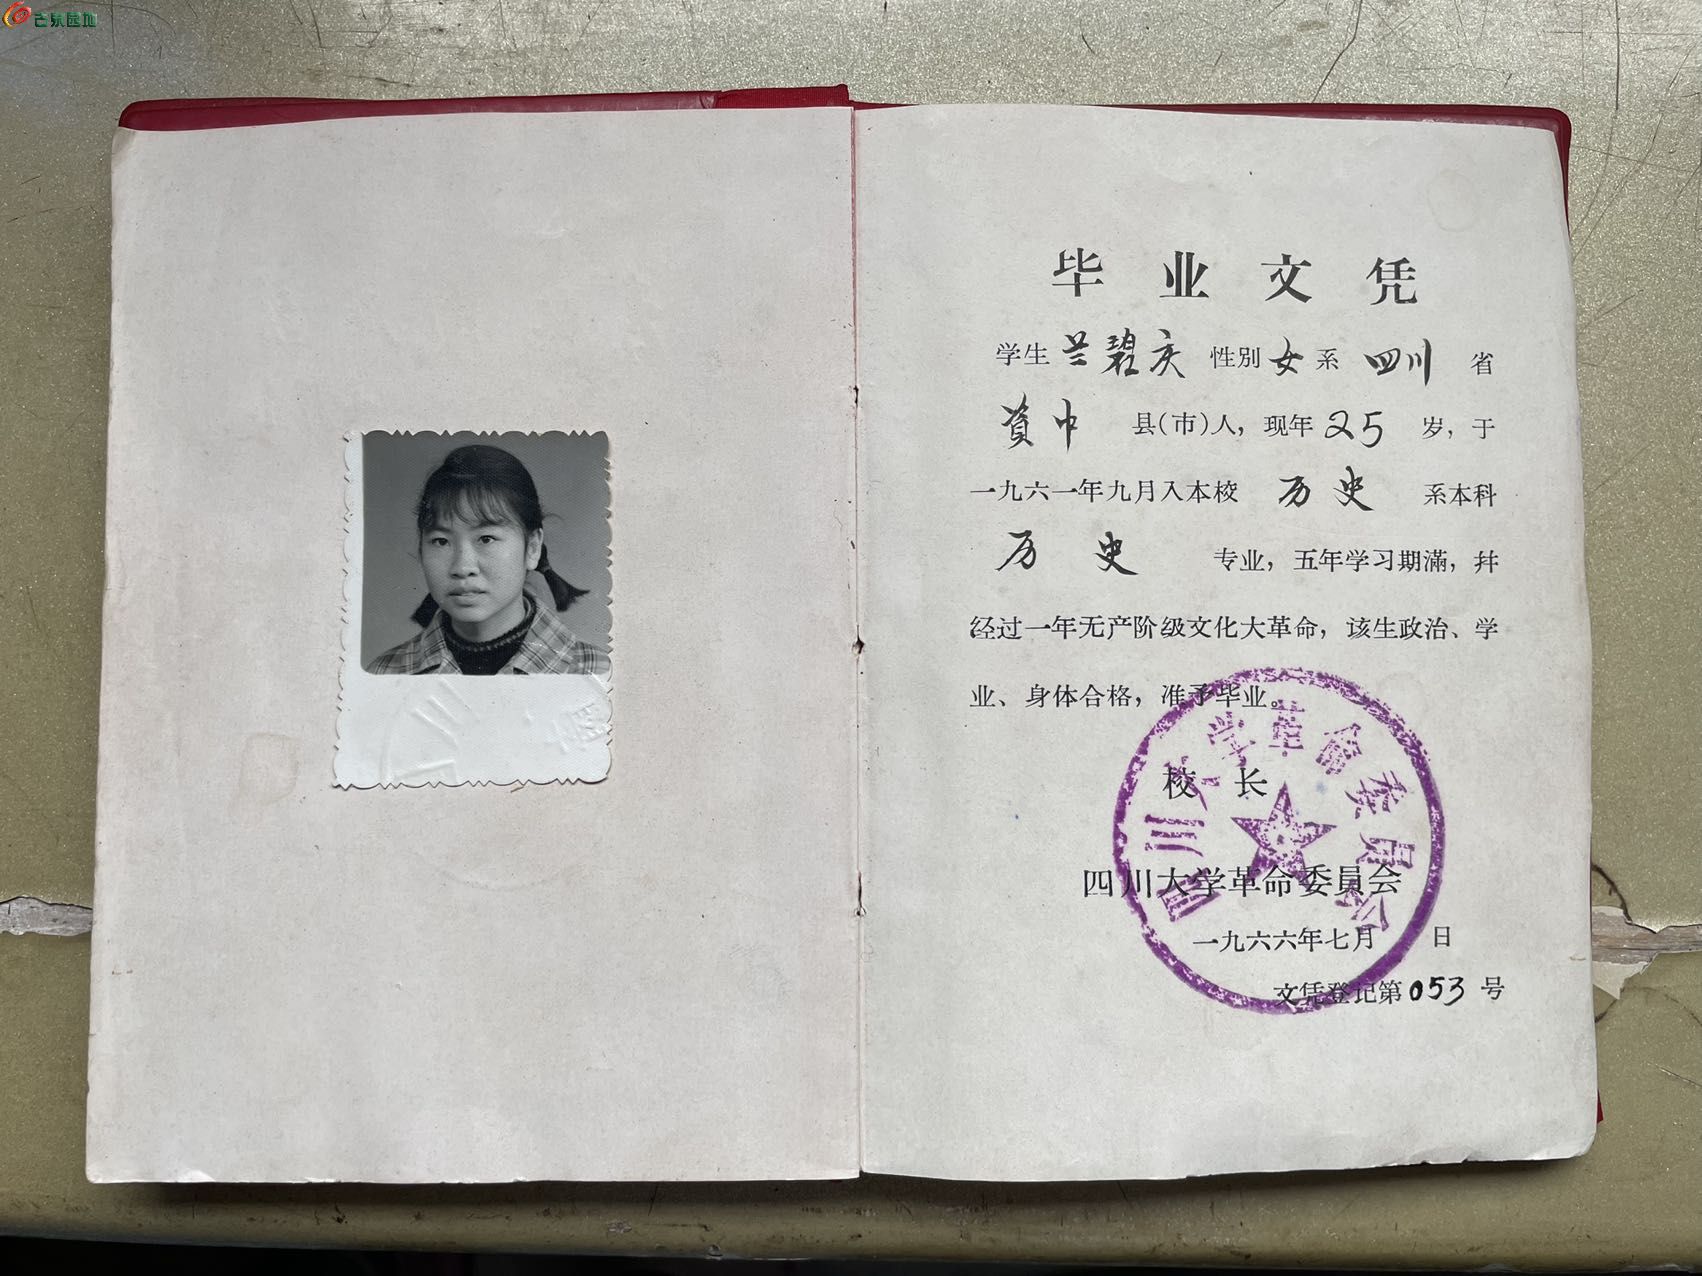 古泉园地
毕业文凭
学生 兰碧庆 性别 女 系 四川 省
資中 县(市)人，现年 25 岁，于
一九六一年九月入本校 历史 系本科
历史 专业，五年学习期滿，幷
经过一年无产阶级文化大革命，该生政治、学
业、身体合格，准予毕业。
校长
四川大学革命委員会
一九六六年七月 日
文凭登记第053号
四川大学革命委員会